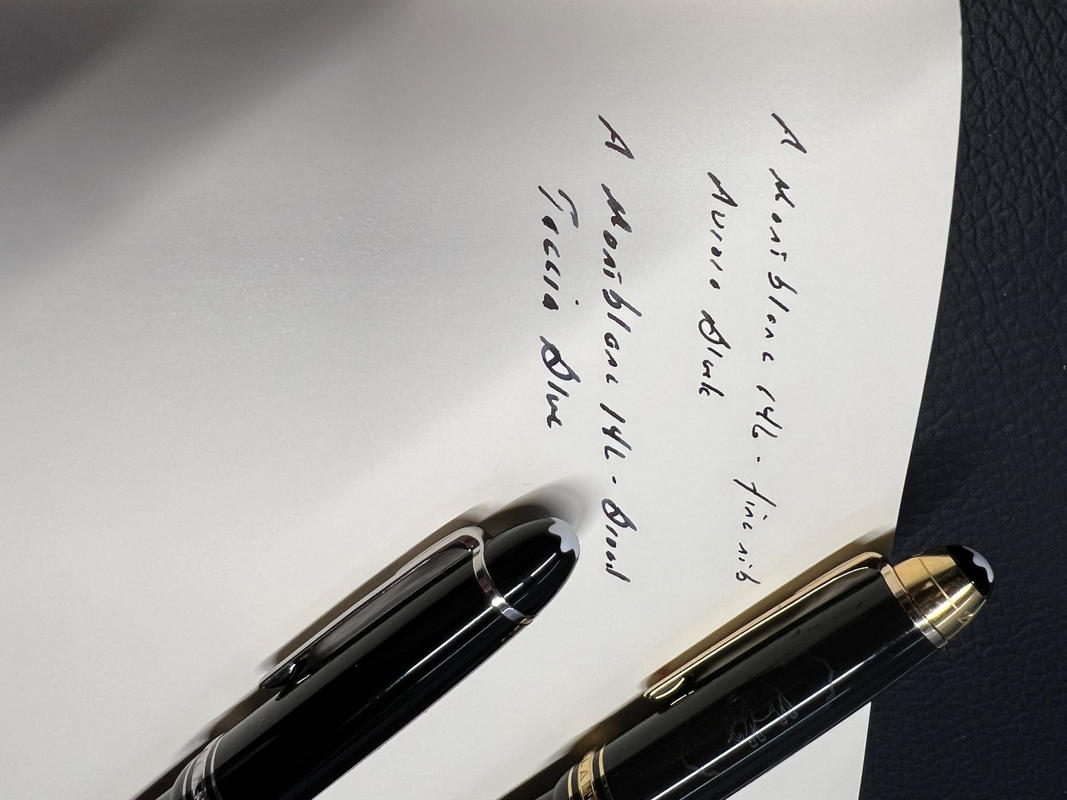 A Montblanc 146 - fine nib
Aurora Black
A Montblanc 146 - Broad
Taccia Blue